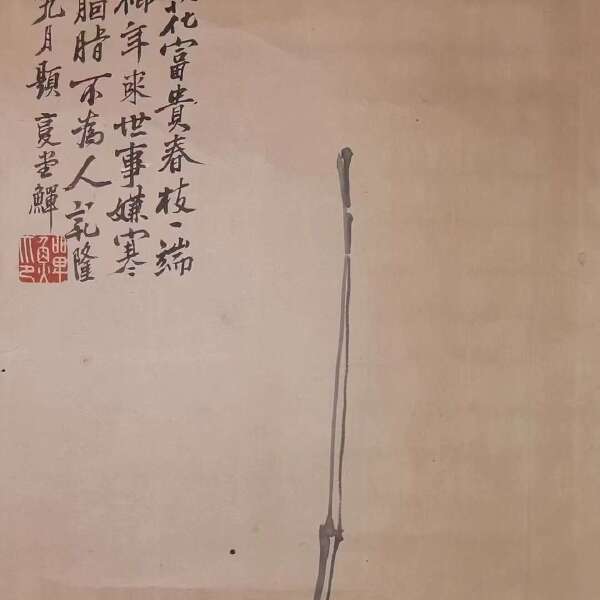 花富貴春枝一端
年來世事嫌寒
胭脂不為人乾隆
九月題复堂鱓